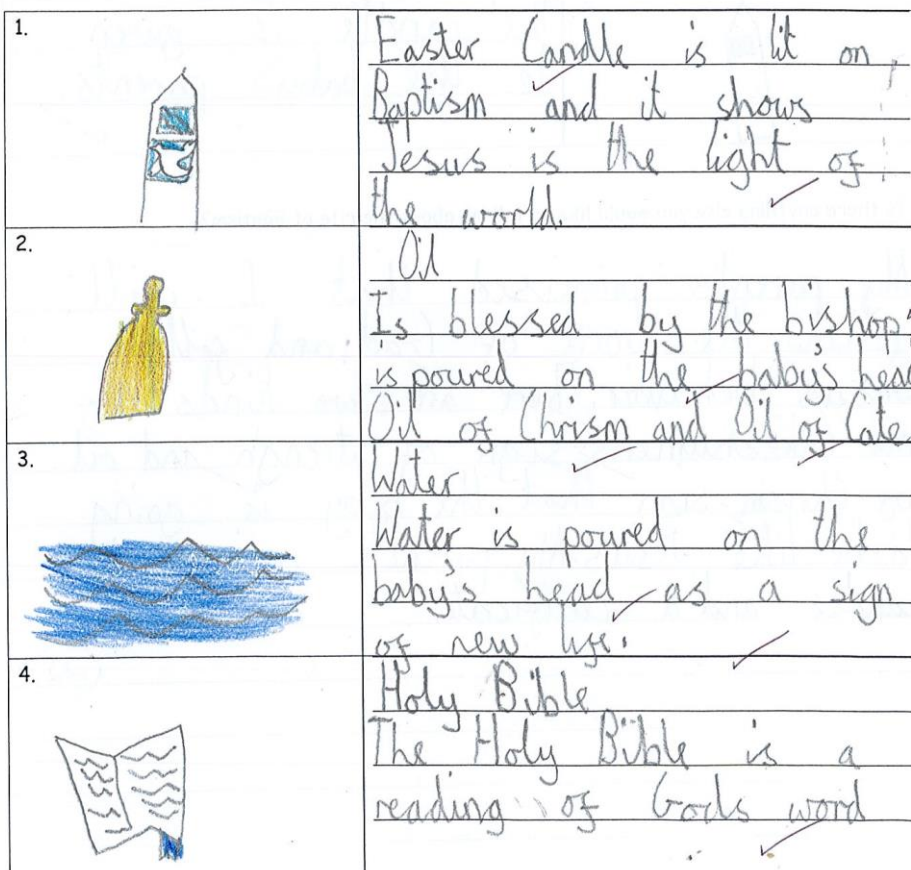 1.
Easter Candle is lit on
Baptism and it shows
Jesus is the light of
the world.
2.
Oil
Is blessed by the bishop
is poured on the baby's head
Oil of Chrism and Oil of Cate
3.
Water
Water is poured on the
baby's head as a sign
of new life.
4.
Holy Bible
The Holy Bible is a
reading of Gods word